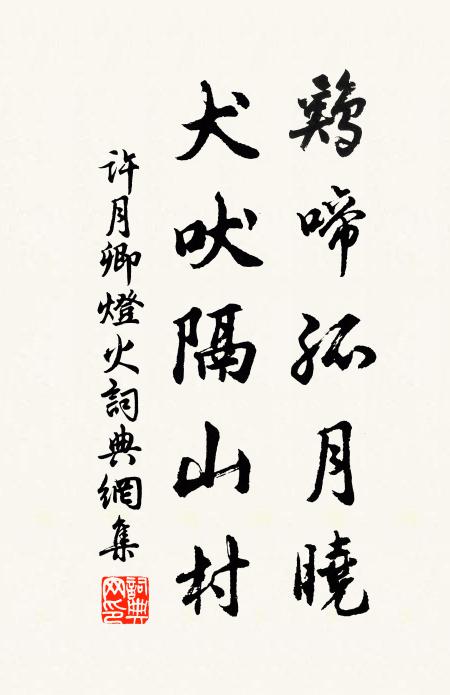 鷄啼孤月曉
犬吠隔山村
許月卿燈火詞典網集